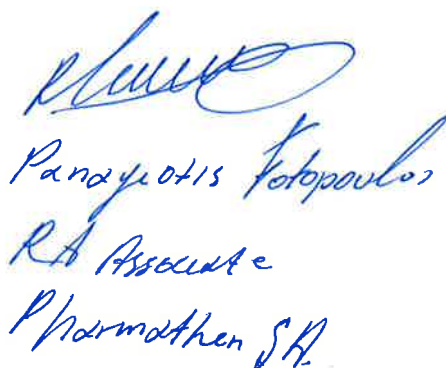 Panayiotis Fotopoulos
RA Associate
Pharmathen S.A.